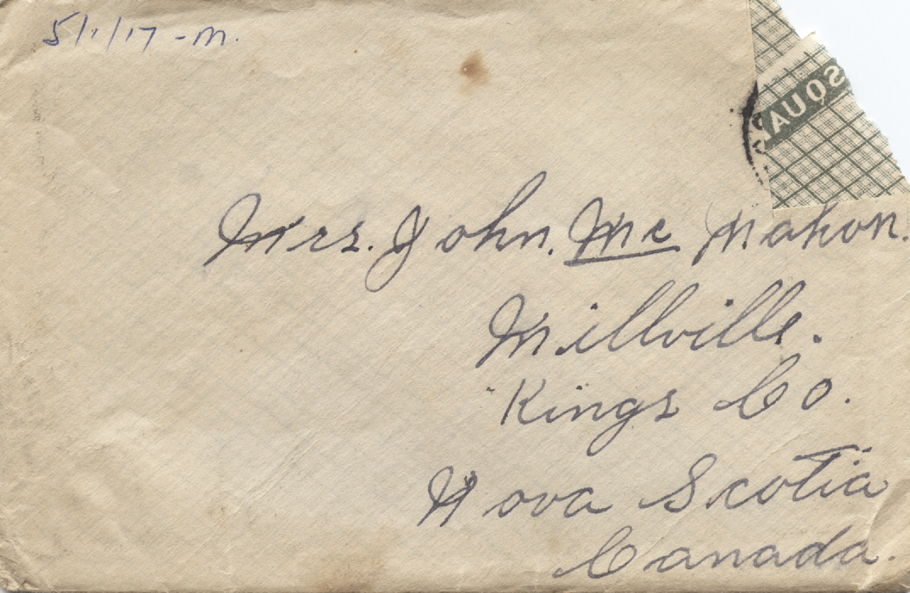 5/1/17 - M.
Mrs. John. Mc Mahon.
Millville.
Kings Co.
Nova Scotia
Canada.